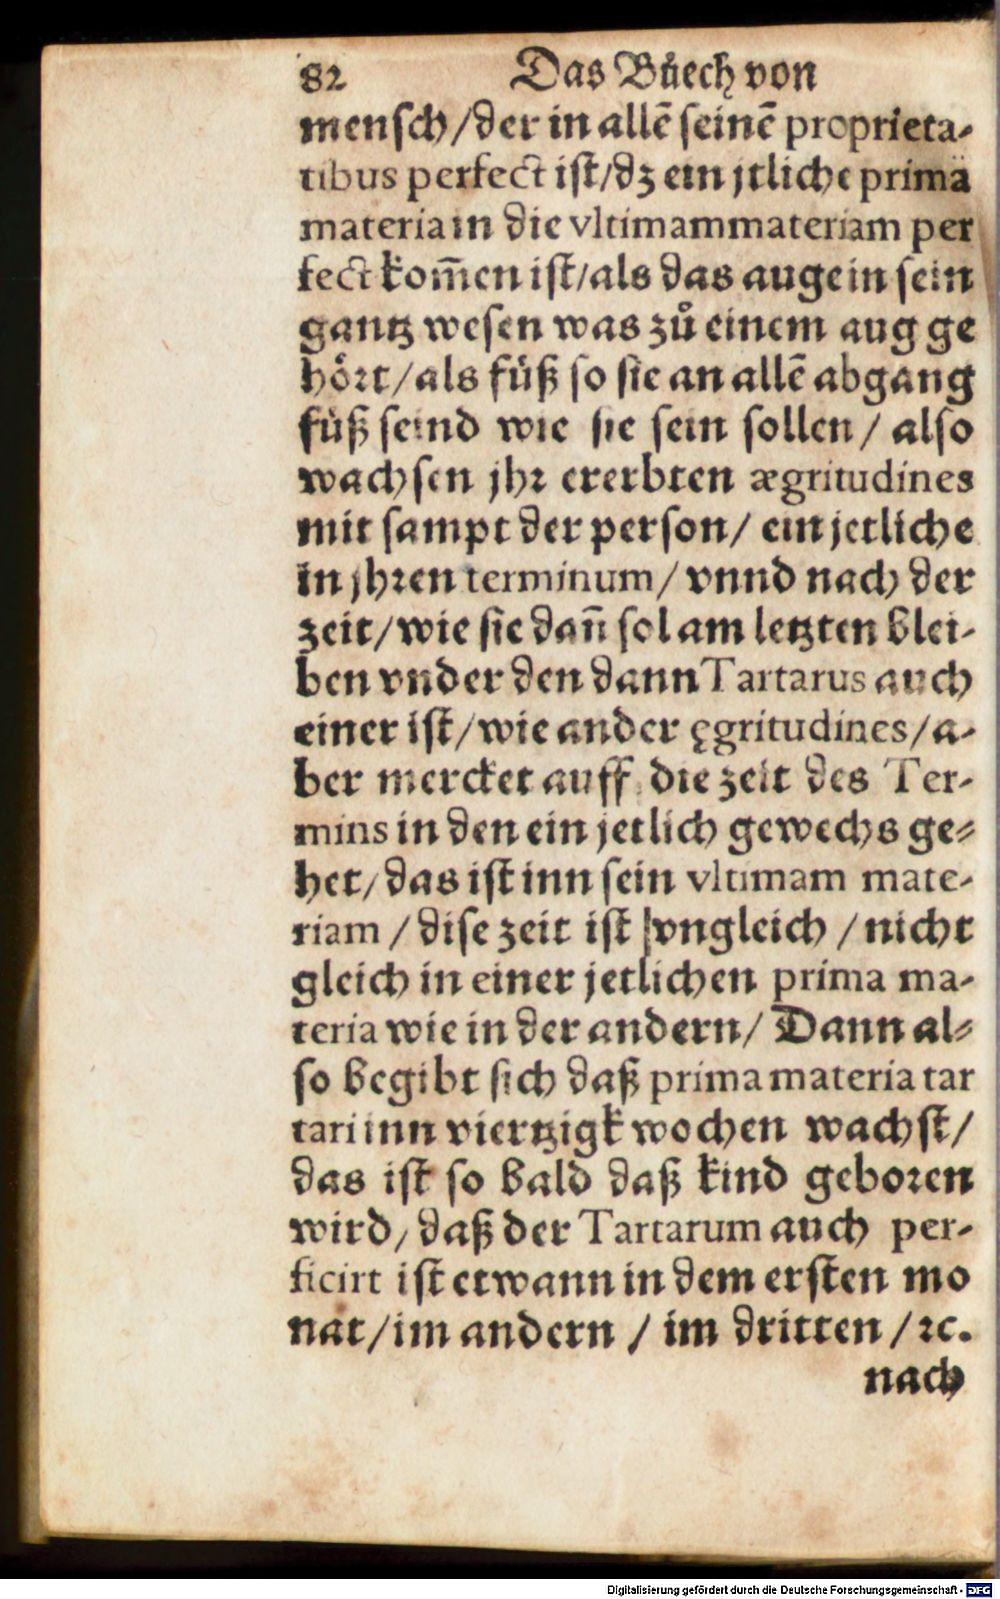 82 Das Bůech von
mensch/der in allẽ seinẽ proprieta-
tibus perfect ist/dz ein jtliche primã
materia in die vltimammateriam per
fect kom̃en ist/als das auge in sein
gantz wesen was zů einem aug ge
hört/als füß so sie an allẽ abgang
füß seind wie sie sein sollen/ also
wachsen jhr ererbten ægritudines
mit sampt der person/ ein jetliche
in jhren terminum/ vnnd nach der
zeit/wie sie dañ sol am letzten blei-
ben vnder den dann Tartarus auch
einer ist/wie ander ęgritudines/a-
ber mercket auff die zeit des Ter-
mins in den ein jetlich gewechs ge-
het/das ist inn sein vltimam mate-
riam /dise zeit ist vngleich /nicht
gleich in einer jetlichen prima ma-
teria wie in der andern/ Dann al-
so begibt sich daß prima materia tar
tari inn viertzigk wochen wachst/
das ist so bald daß kind geboren
wird/daß der Tartarum auch per-
ficirt ist etwann in dem ersten mo
nat/im andern / im dritten /ꝛc.
nach
Digitalisierung gefördert durch die Deutsche Forschungsgemeinschaft - DFG